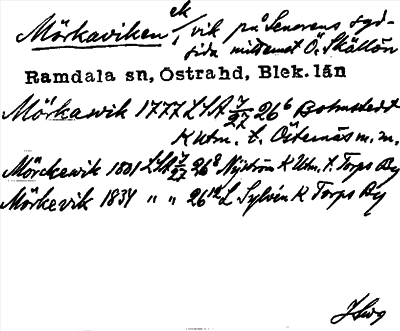 Mörkaviken ek/, vik på Senorens syd-
sida mittemot Ö. Skällön
Ramdala sn, Östra hd, Blek. län
Mörkawik 1777 LSA 7/27 26⁶ Bohnstedt
K utm. t. Östernäs m.m.
Mörckewik 1801 LSA 7/27 26⁸ Nyström K Utm. t. Torps By
Mörkevik 1834 " " 26¹² L Sylvén K Torps By